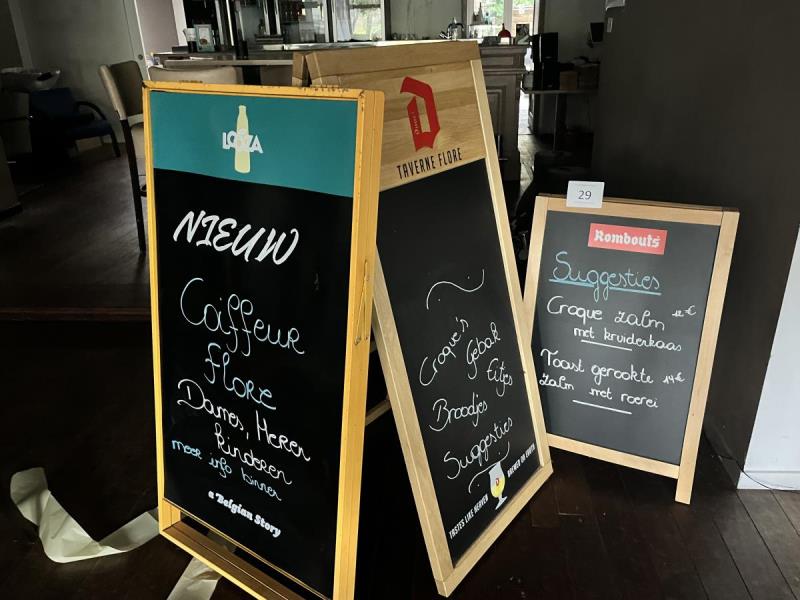 LOOZA
NIEUW
Coiffeur
Flore
Dames, Heren
kinderen
meer info binnen
a Belgian Story
Duvel
TAVERNE FLORE
Croque's
Gebak
Eitjes
Broodjes
Suggesties
TASTES LIKE HEAVEN
BREWED ON EARTH
29
Rombouts
Suggesties
Croque zalm 12€
met kruiderkaas
Toast gerookte 14€
zalm met roerei